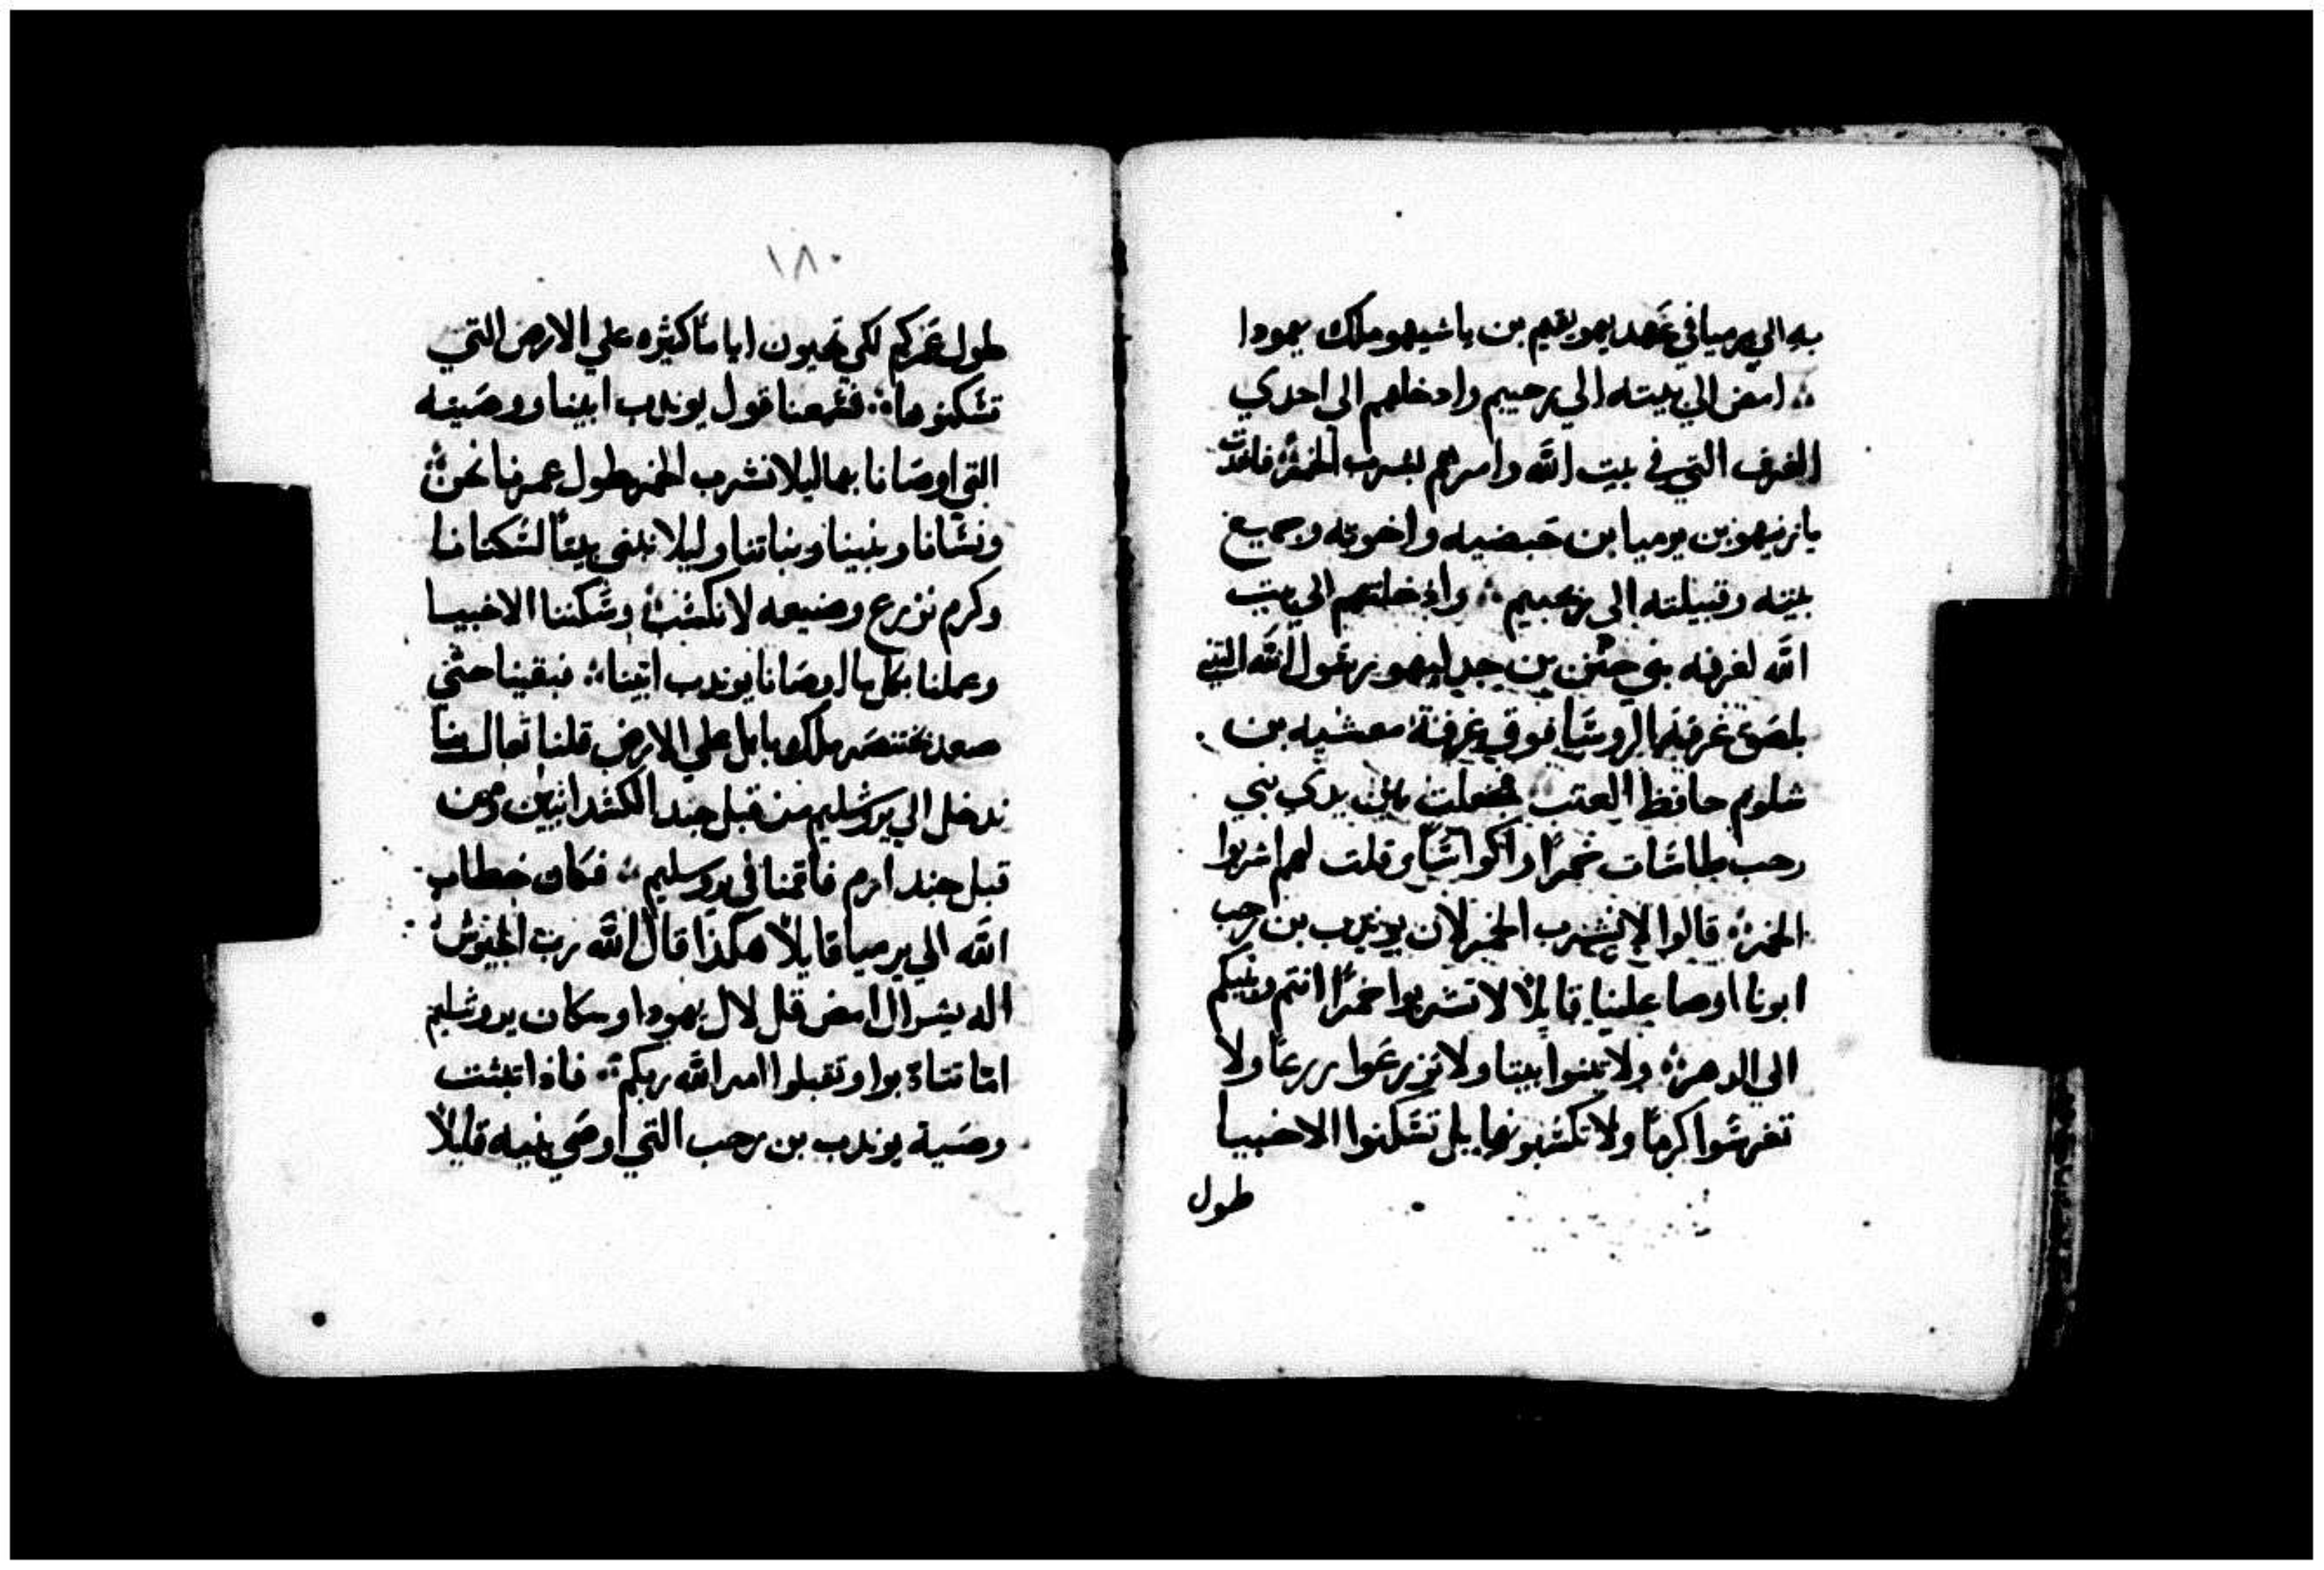 به الي يرميا في عهد يهويقيم بن ياشيهو ملك يهودا
؞ امض الي بيته الي رحيبم وادخلهم الي احدي
الغرف التي في بيت الله وامرهم بشرب الخمر؞ فاخدت
يازنيهو بن يرميا بن حبضيه واخوته وجميع
بيته وقبيلته الي رحيبم ؞ وادخلتهم الي بيت
الله لغرفه بني حنن بن جدليهو رسول الله التي
بلصق غرفة الروسا فوق غرفة معشيه بن
شلوم حافظ العتب فجعلت بين يدي بني
رحب طاسات خمرًا واكواسًا وقلت لهم اشربوا
الخمر؞ قالوا لا نشرب الخمر لان يوندب بن رحب
ابونا اوصا علينا قايلًا لا تشربوا خمرًا انتم وبنيكم
الي الدهر؞ ولا تبنوا بيتا ولا تزرعوا زرعًا ولا
تغرسوا كرمًا ولا تكتسبونها بل تسكنوا الاخبيا
طول
١٨٠
طول عمركم لكي تحيون ايامًا كثيره علي الارض التي
تسكنوها؞ فسمعنا قول يوندب ابينا ووصيته
التي اوصانا بها ليلا نشرب الخمر طول عمرنا نحن
ونسانا وبنينا وبناتنا وليلا نبني بيتًا لسكنانا
وكرم نزرع وضيعه لا نكتسب وسكننا الاخبيا
وعملنا بكل ما اوصانا يوندب ابينا؞ فبقينا حتي
صعد بختنصر ملك بابل علي الارض قلنا تعال بنا
ندخل الي يروشليم من قبل جند الكشدانيين ومن
قبل جند ارم فاقمنا في يروسليم ؞ فكان خطاب
الله الي يرميا قايلًا هكذا قال الله رب الجيوش
اله يسرال امض قل لال يهودا وسكان يروشليم
اما تتادبوا وتقبلوا امر الله ربكم؞ فاذا تبثت
وصية يوندب بن رحب التي اوصي بنيه قليلًا